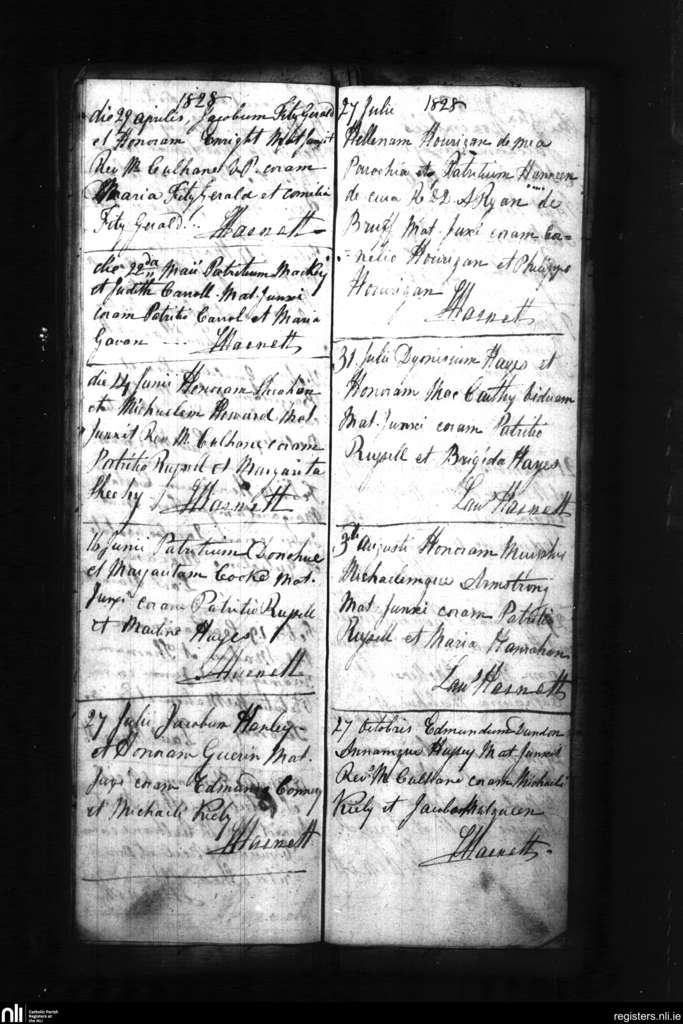 1828
die 29 aprilis, Jacobum FitzGerald
et Honoram Enright Mat. Junxit
Rev. M. Culhane V.P. coram
Maria FitzGerald et
Fitz Gerald. LHarnett
die 22da Maii Patritium Mackey
et Judith Carroll Mat. Junxi
coram Patritio Carrol et Maria
Gavan LHarnett
die 14 Junii Honoram
et Michaelem Howard Mat.
Junxit Rev. M. Culhane coram
Patritio Russell et Margarita
Sheehy LHarnett
16 Junii Patritium Donohue
et Margaritam Cooke Mat.
Junxi coram Patritio Russell
et Martino Hayes
LHarnett
27 Julii Jacobum Hanley
et Honoram Guerin Mat.
Junxi coram Edmundo
et Michaeli Kiely
LHarnett
27 Julie 1828
Hellenam Hourigan de mea
Parochia et Patritium
de cura Rd. D. A Ryan de
Bruff Mat. Junxi coram Cor-
-nelio Hourigan et Philippo
Hourigan
LHarnett
31 Julii Dyonisium Hayes et
Honoram Mac Carthy viduam
Mat. Junxi coram Patritio
Russell et Brigida Hayes
Lau Harnett
3 Augusti Honoram
Michaelemque Armstrong
Mat. Junxi coram Patritio
Russell et Maria Hanrahan
Lau Harnett
27 Octobris Edmundum Dundon
Annamque Hussey Mat. Junxit
Revd. M. Culhane coram Michaeli
Kiely et Jacobo
LHarnett.
nli
Catholic Parish
Registers at
the NLI
registers.nli.ie